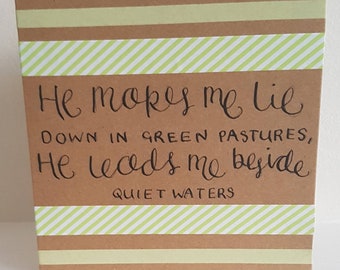 He makes me lie
DOWN IN GREEN PASTURES,
He leads me beside
QUIET WATERS